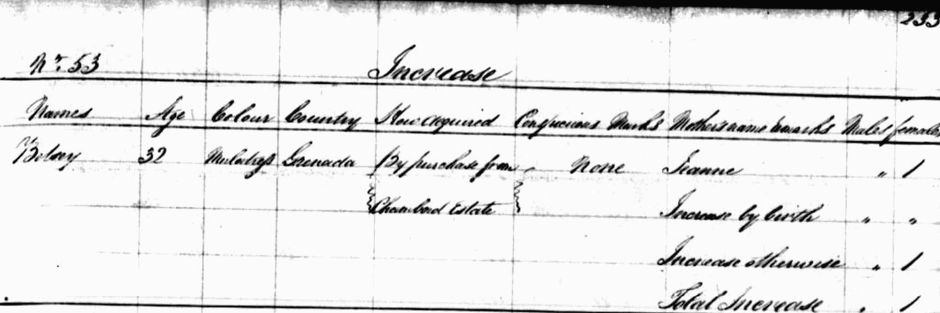 233
No. 53 Increase
Names Age Colour Country How acquired Conspicious Marks Mother's name & marks Males females
Betsey 32 Mulatress Grenada By purchase from None Jeanne " 1
Estate Increase by birth " "
Increase otherwise " 1
Total Increase " 1